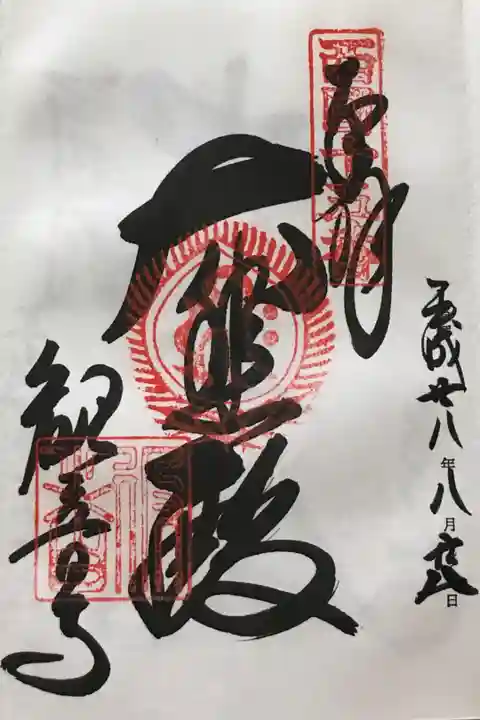 平成廿八年八月 日
奉拝
西国十五番
大悲殿
観音寺